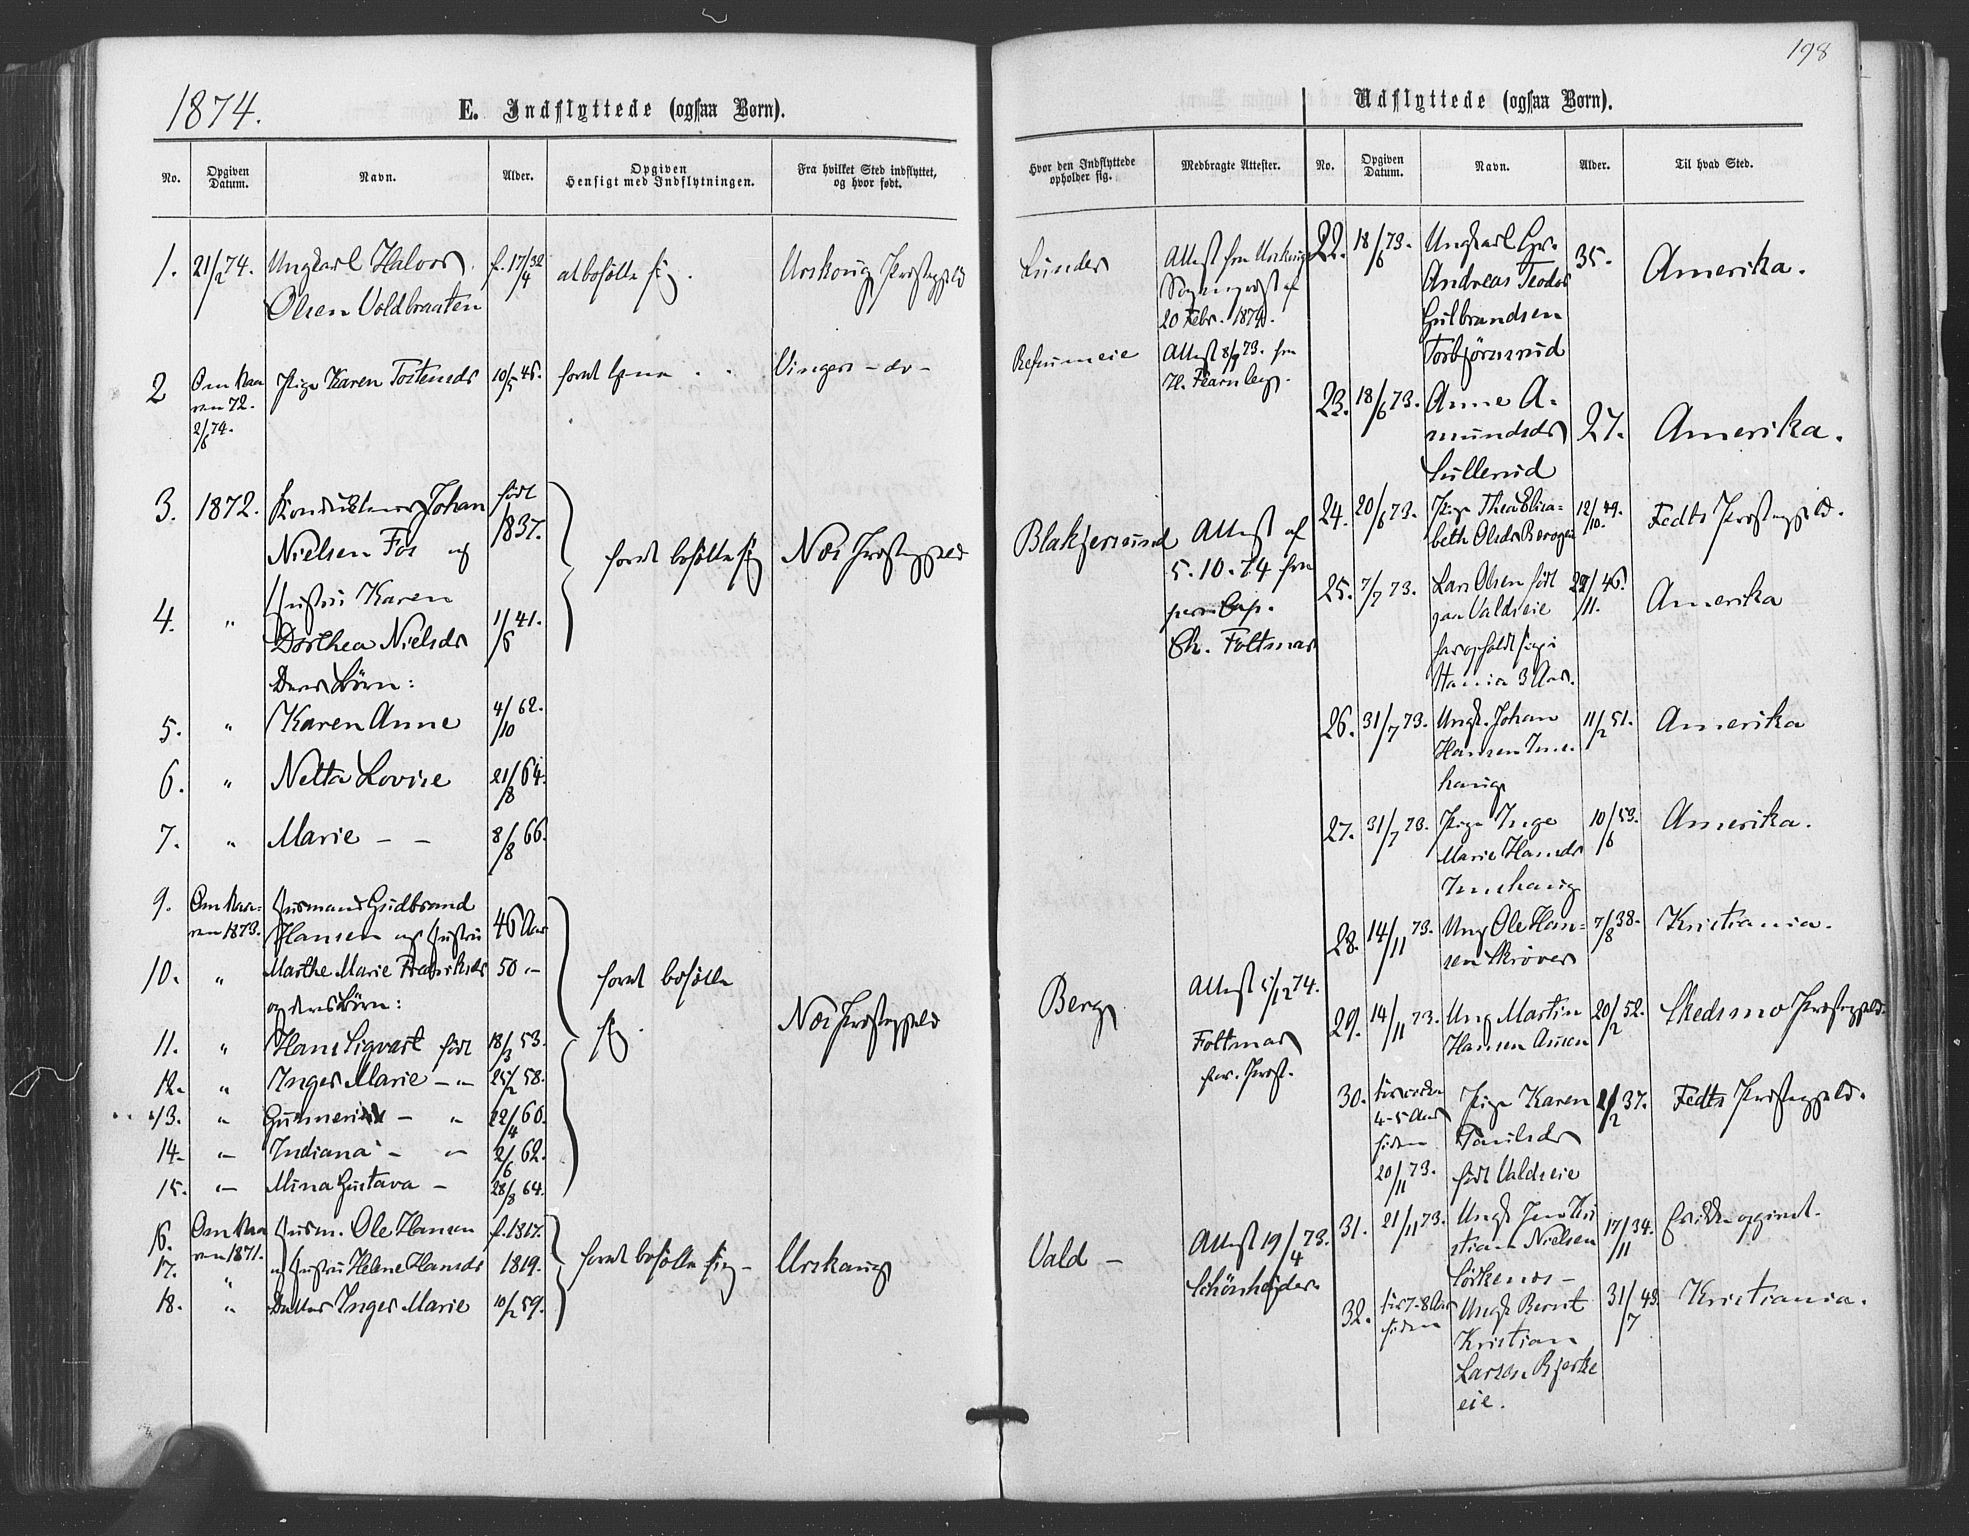 198
1874.
E. Indflyttede (ogsaa Børn).
No.
Opgiven Datum.
Navn.
Alder.
Opgiven Hensigt med Indflytningen.
Fra hvilket Sted indflyttet, og hvor født.
Hvor den Indflyttede opholder sig.
Medbragte Attester.
1. 21/2 74. Ungkarl Halvor f. 17/4 32 at bosætte sig. Urskoug Præstegjeld Lunder Attest fra Urskoug
Olsen Voldbraaten Sogneprest af
20 Febr. 1874.
2 Om Vaa Pige Karen Tostensdr 10/5 45. Vinger - do - Attest 8/9 73. fra
ren 72. H. Fearnley.
2/6 74.
3. 1872. Konduktør Johan født
Nielsen Fos og 1837.
4. " Hustru Karen 1/6 41. bosætte sig Næs Præstegjeld Attest af
Dorthea Nielsdr 5.10.74 fra
Deres Børn: pers. Cap.
Ch. Foltmar
5. " Karen Anne 4/10 62.
6. " Netta Lovise 21/8 64.
7. " Marie - - 8/8 66.
9. Om Vaa- Husmand Gudbrand
ren 1873. Hansen og Hustru 46 Aar
10. " Marthe Marie Frederiksdr 50 - bosætte
og deres Børn: sig. Næs Præstegjeld Berg Attest 5/12 74.
11. " Hans Sigvart født 18/3 53. Foltmar
12. " Inger Marie - " - 25/2 58. per. Præst.
13. " - " 22/4 60.
14. - " - Indiana - " - 2/6 62.
15. - " - Mina Gustava - 28/8 64.
16. Om Vaa Husm. Ole Hansen f. 1817.
ren 1871.
17. " og Hustru Helene Hansdr 1819. bosætte sig - Urskoug Vald - Attest 19/4 73.
18. " Datter Inger Marie 10/2 59. Schönheyder
Udflyttede (ogsaa Børn).
No.
Opgiven Datum.
Navn.
Alder.
Til hvad Sted.
22. 18/6 73. Ungkarl 35. Amerika.
Andreas Teodor
Gulbrandsen
Torbjörnsrud
23. 18/6 73. Anne A- 27. Amerika.
mundsdr
Lullerud
24. 20/6 73. Pige Thea Elisa- 12/10 49. Fedts Præstegjeld.
beth Olsdr
25. 7/7 73. Lars Olsen født 46. Amerika
paa Valdseie
har opholdt sig i
3 Aar.
26. 31/7 73. Ungk. Johan 11/2 51. Amerika
Hansen Inn-
haug
27. 31/7 73. Pige Inge 10/6 53. Amerika.
Marie Hansdr
Innhaug
28. 14/11 73. Ung Ole Han- 7/8 38. Kristiania.
sen Skriver
29. 14/11 73. Ung Martin 20/2 52. Skedsmo Præstegjeld.
Hansen Aasen
30. 4-5 Aar siden 20/11 73. Pige Karen 37. Fedts Præstegjeld.
Paulsdr
født Valdseie
31. 21/11 73. Ungk Jens Kri 17/11 34.
stian Nielsen
32. for 7-8 Aar siden Ungk Bernt 31/7 43. Kristiania.
Kristian
Larsen Bjerke
eie.